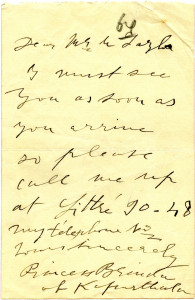 Dear Mr
I must see
you as soon as
you arrive
so please
call me up
at Littré 90-48
my téléphone No
yours sincerely
Princess
of Kapurthala